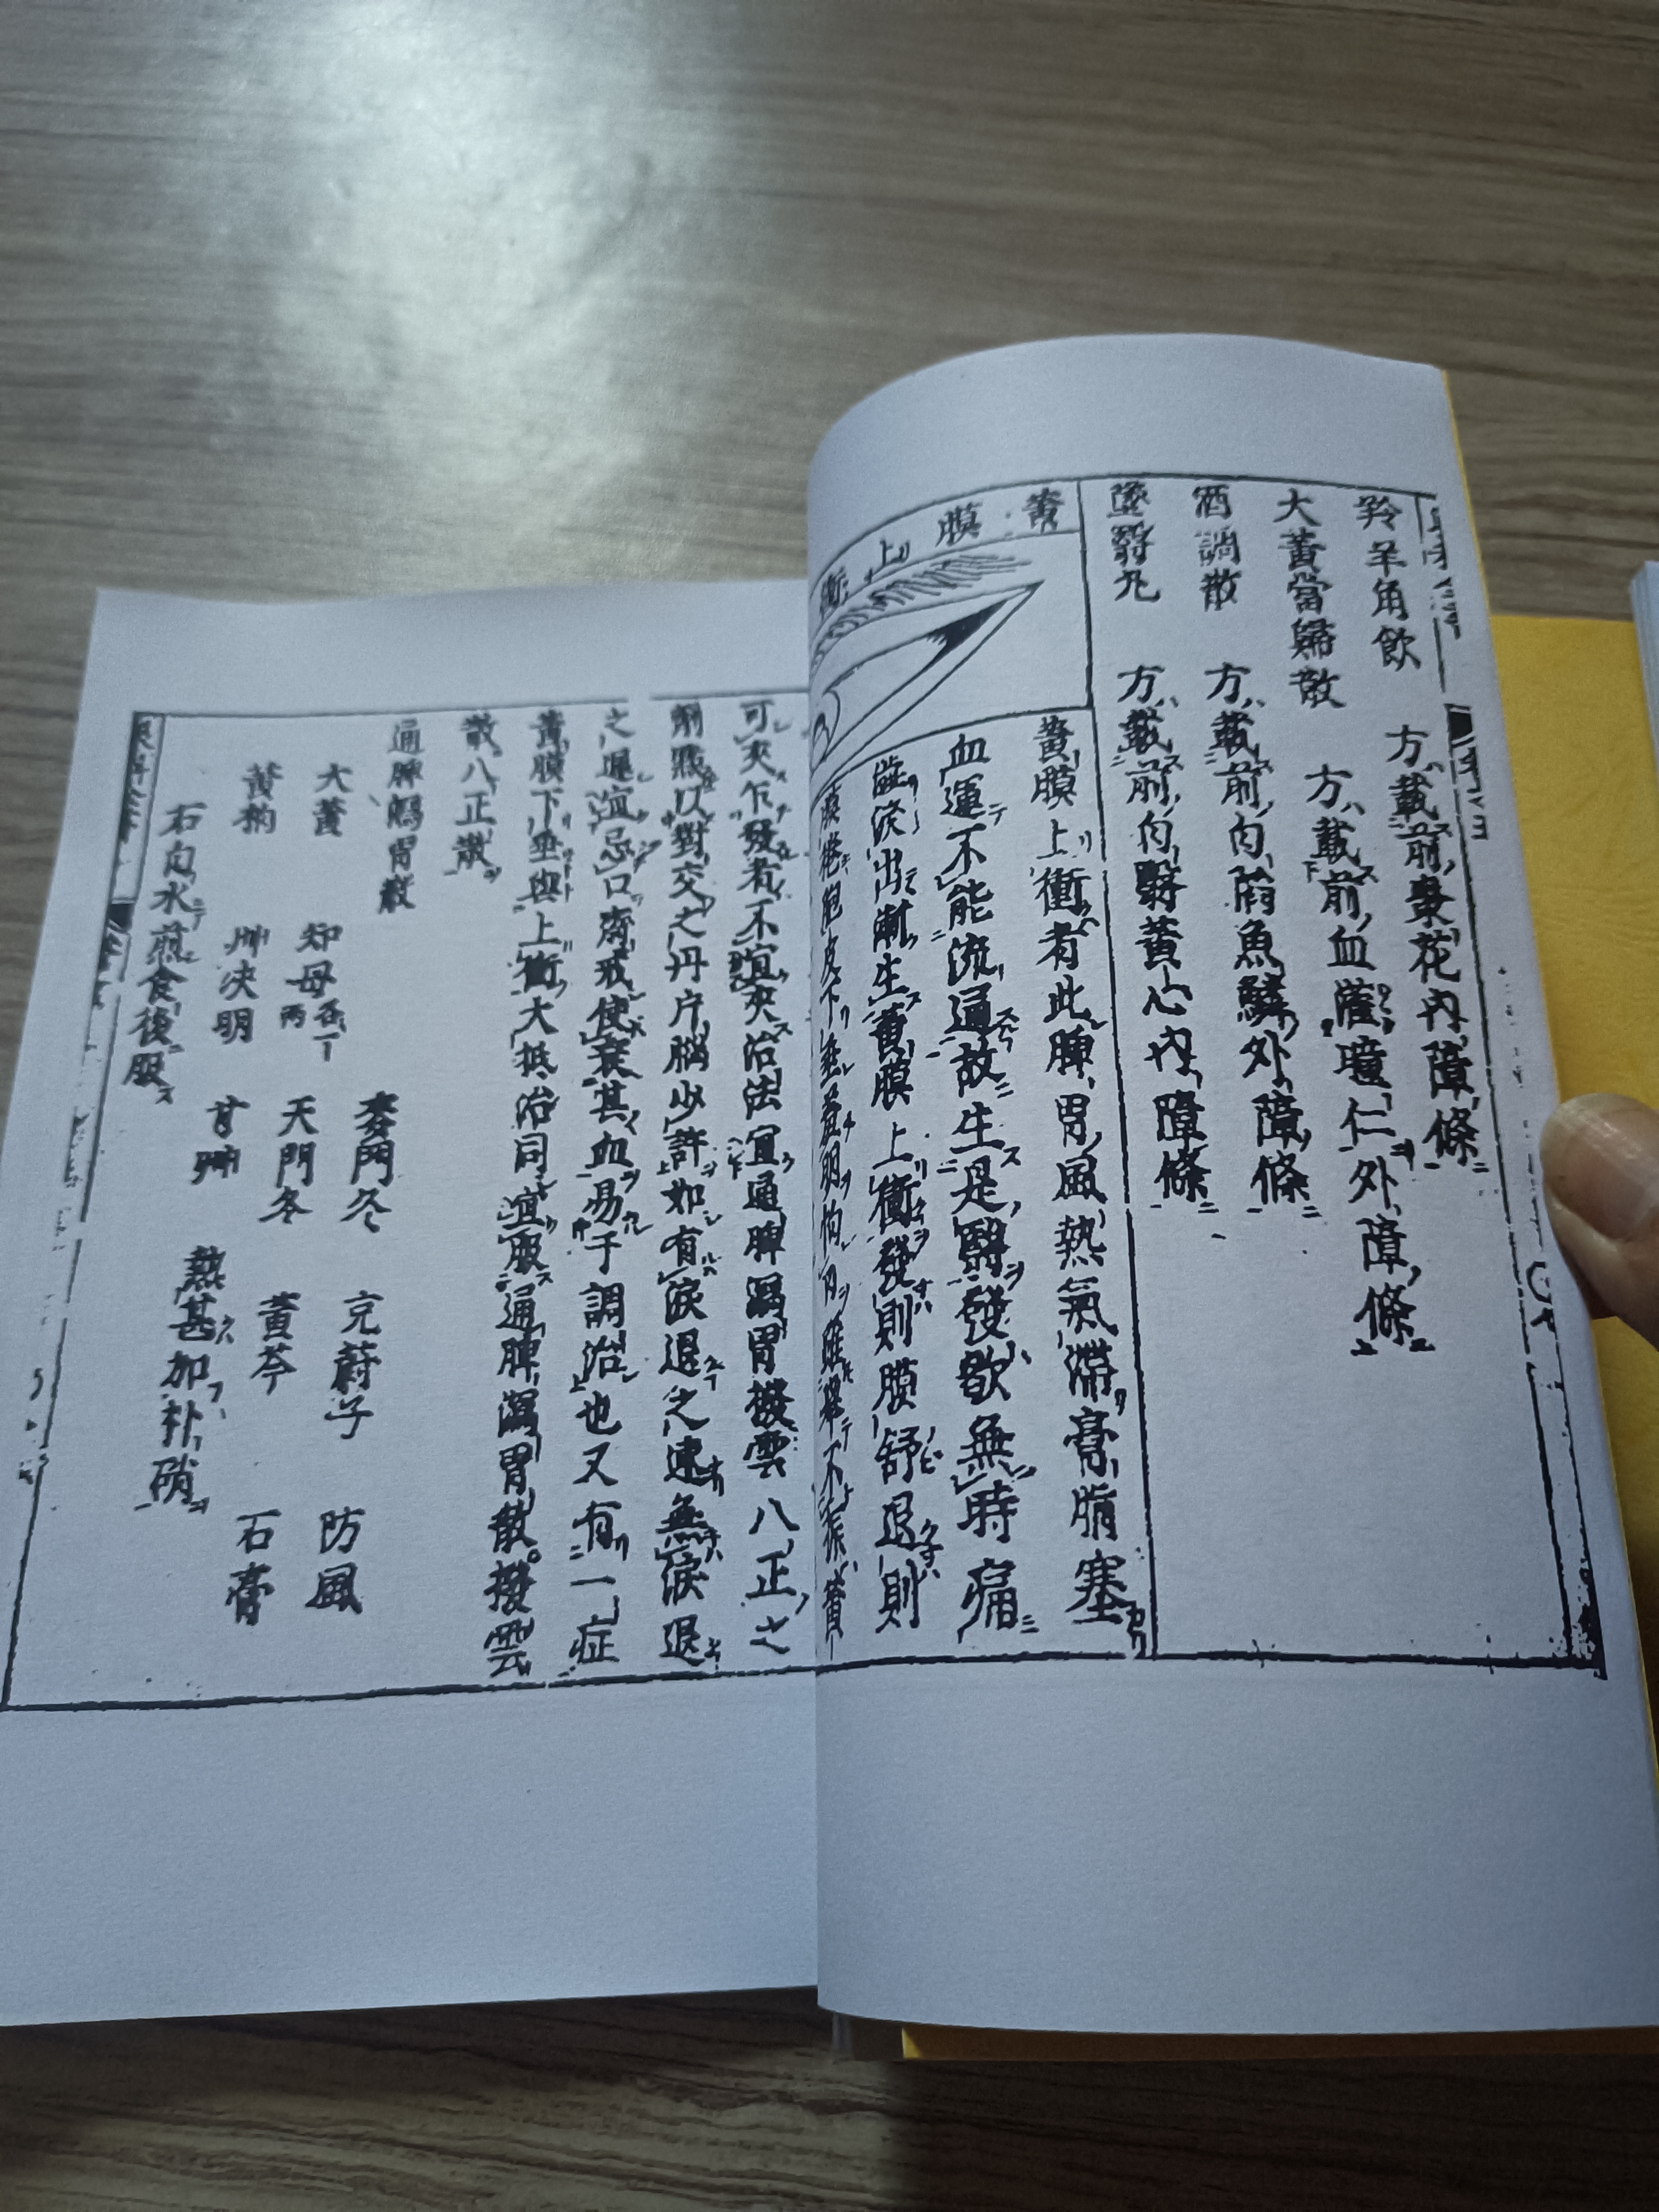 羚羊角飲 方載前棗花內障條
大黃當歸散 方載前血灌瞳仁外障條
酒調散 方載前內魚鱗外障條
墜翳丸 方載前內翳黃心內障條
黃膜上衝
黃膜上衝者此脾胃風熱氣滯膏脂塞
血運不能流通故生是翳發歇無時痛
澁淚出漸生黃膜上衝發則膜舒退則
膜捲胞皮下垂
可夾乍發者不宜夾治法宜通脾瀉胃撥雲八正之
劑戩以對交之丹片腦少許如有淚退之速無淚退
之遲宜忌口齋戒使衰其血易于調治也又有一症
黃膜下垂與上衝大抵治同宜服通脾瀉胃散撥雲
散八正散
通脾瀉胃散
麥門冬 充蔚子 防風
大黃 知母各一兩 天門冬 黃芩 石膏
黃柏 艸決明 甘艸 熱甚加朴硝
石白水煎食後服